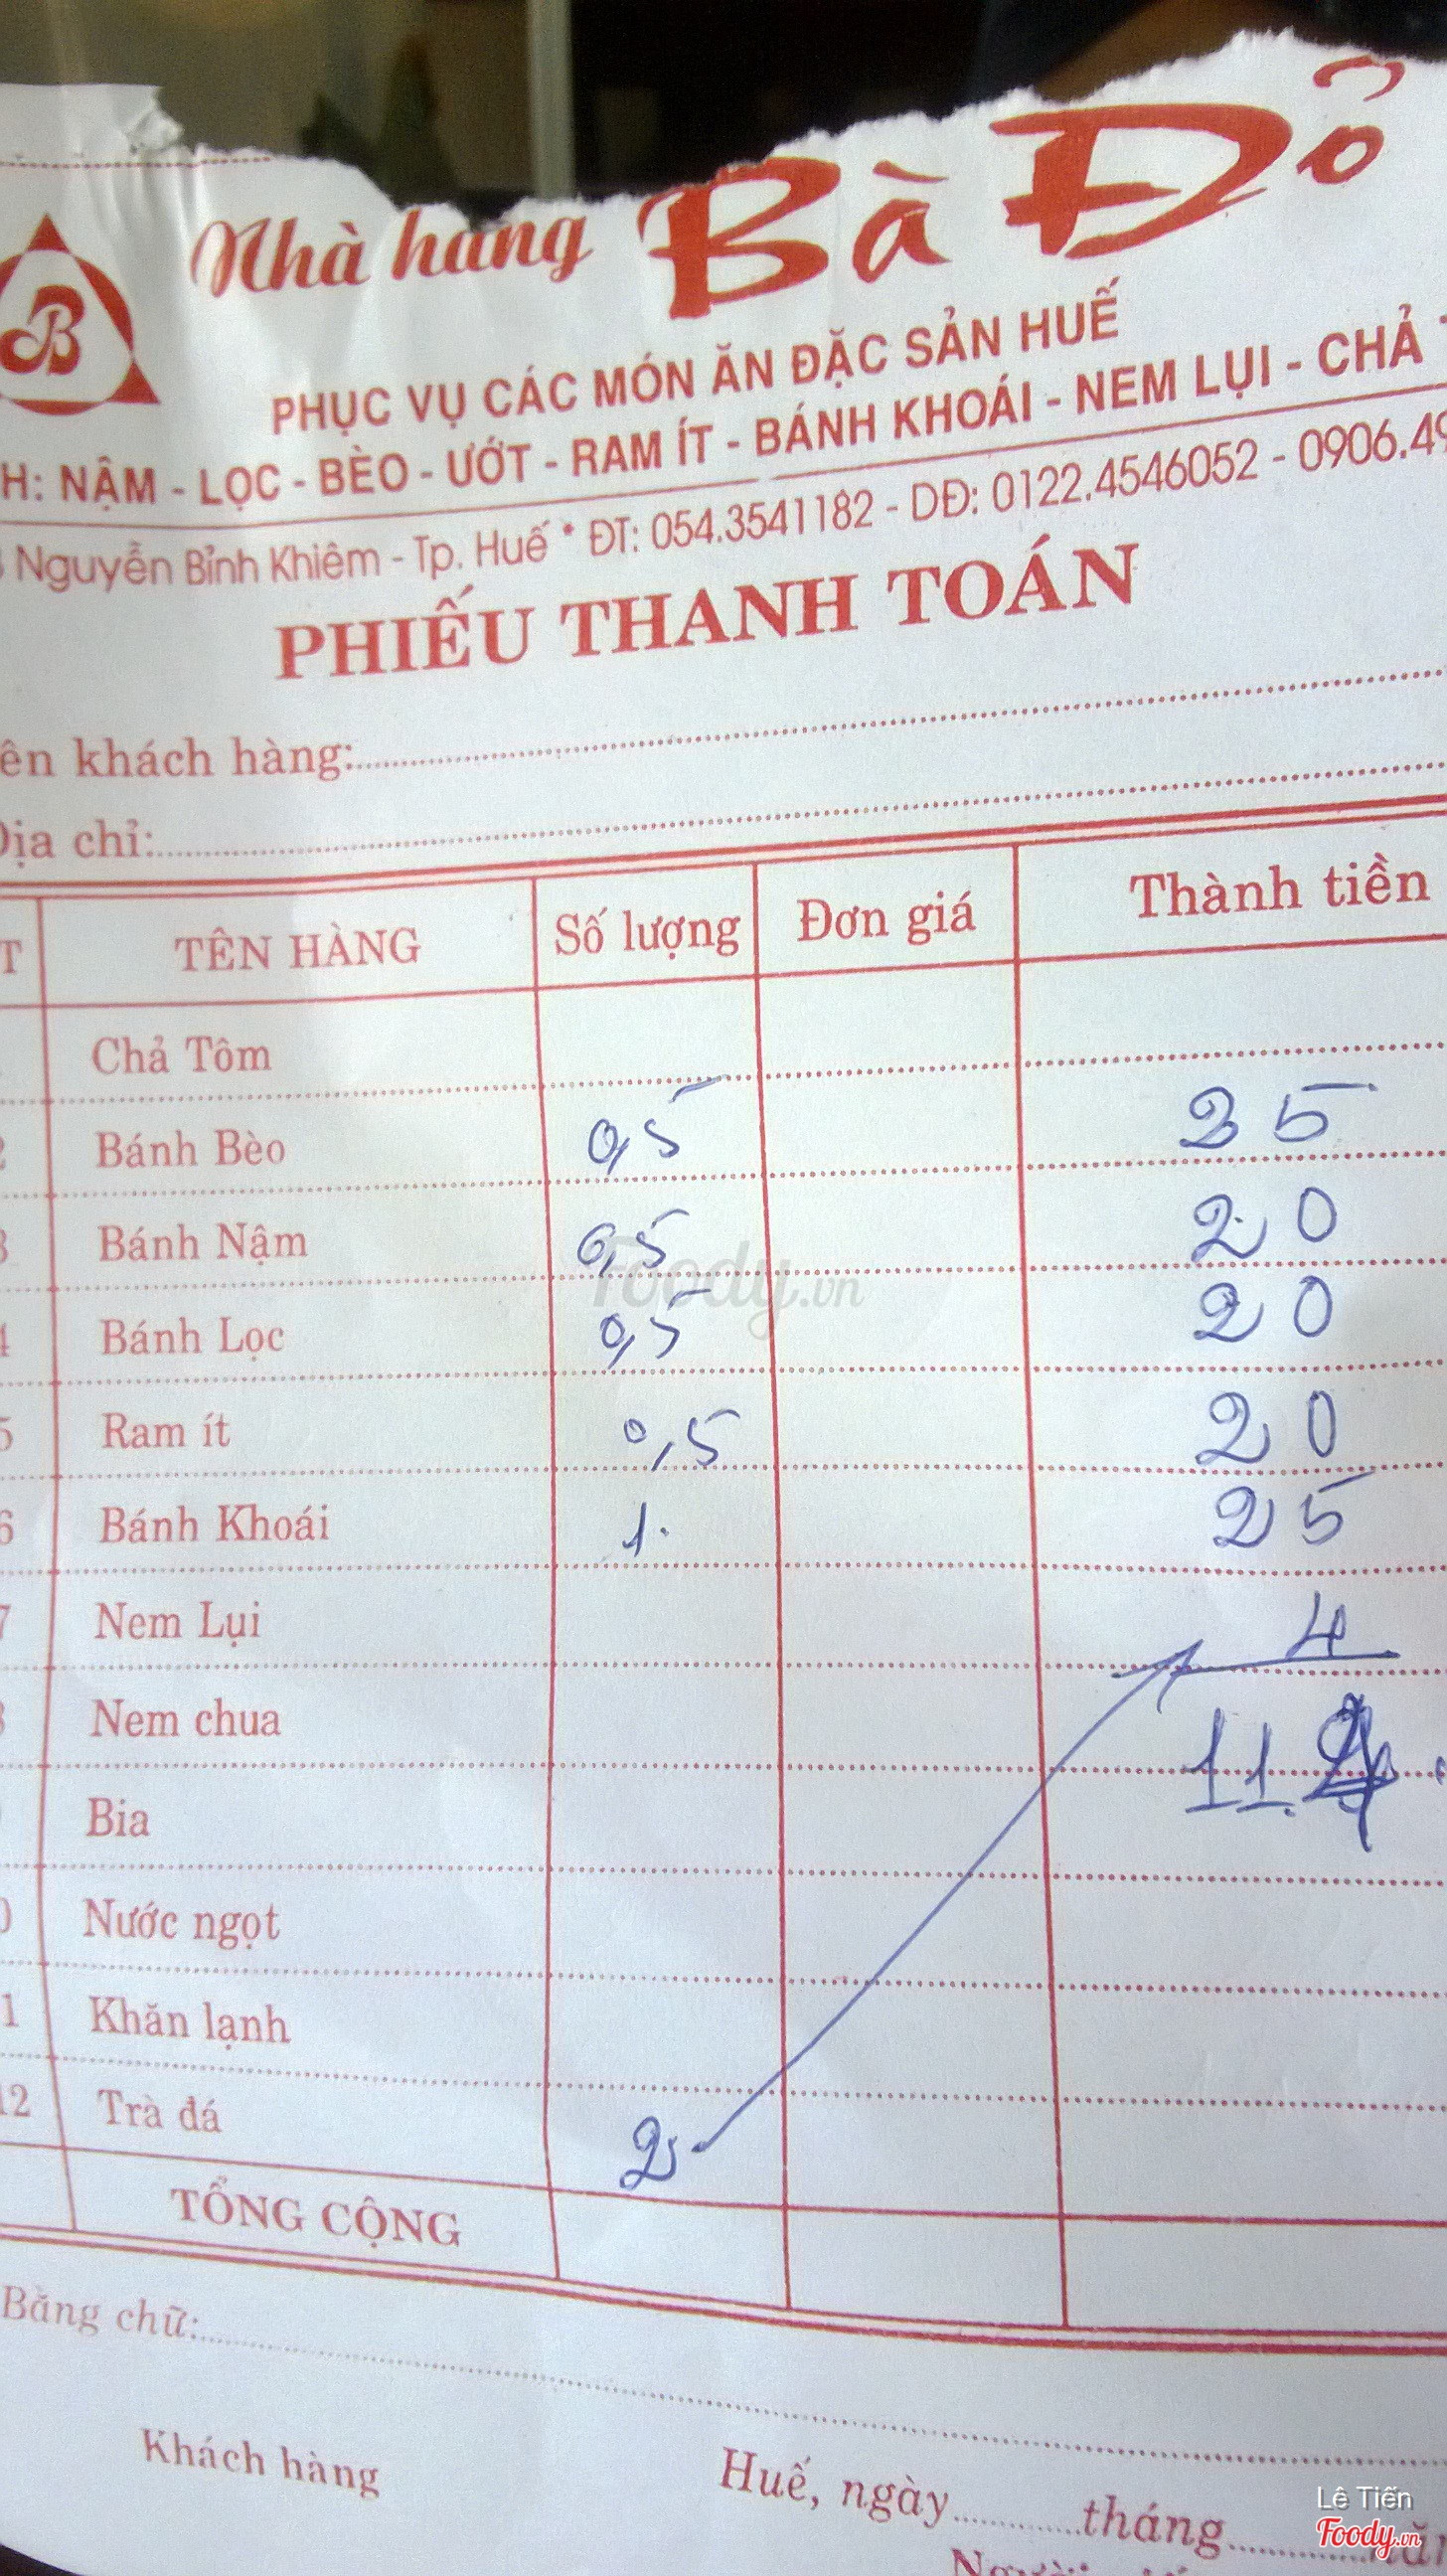 Nhà hàng Bà Đỏ
B
PHỤC VỤ CÁC MÓN ĂN ĐẶC SẢN HUẾ
H: NẬM - LỌC - BÈO - ƯỚT - RAM ÍT - BÁNH KHOÁI - NEM LỤI - CHẢ
Nguyễn Bỉnh Khiêm - Tp. Huế * ĐT: 054.3541182 - DĐ: 0122.4546052 - 0906.49
PHIẾU THANH TOÁN
ên khách hàng:
Địa chỉ:
T TÊN HÀNG Số lượng Đơn giá Thành tiền
Chả Tôm
2 Bánh Bèo 0,5 25
3 Bánh Nậm 0,5 20
4 Bánh Lọc 0,5 20
5 Ram ít 0,5 20
6 Bánh Khoái 1. 25
7 Nem Lụi 4
8 Nem chua 11
Bia
0 Nước ngọt
1 Khăn lạnh
12 Trà đá 2
TỔNG CỘNG
Bằng chữ:
Khách hàng
Huế, ngày tháng năm
Foody.vn
Lê Tiến
Foody.vn